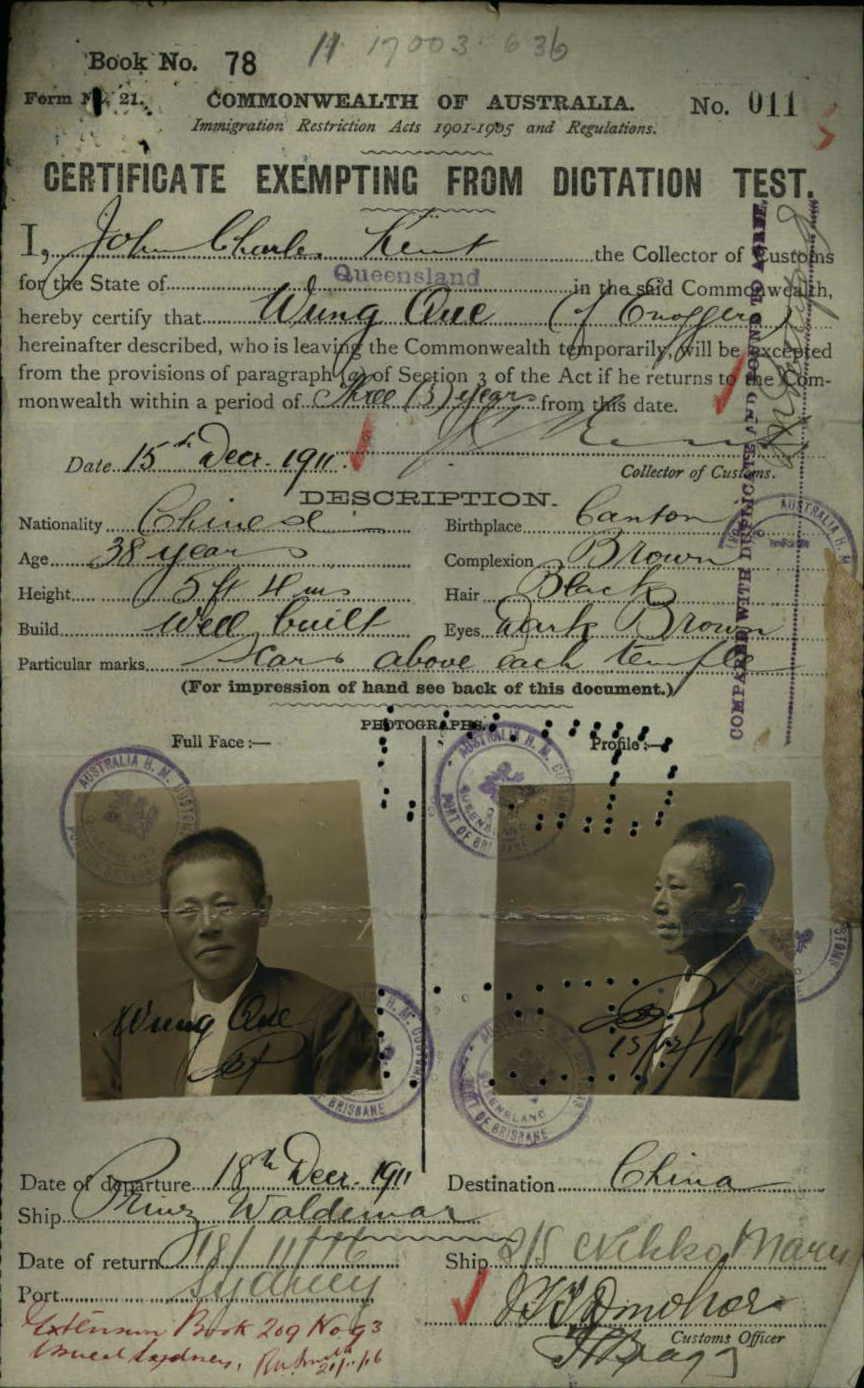 Book No. 78
Form No. 21.
COMMONWEALTH OF AUSTRALIA.
No. 011
Immigration Restriction Acts 1901-1905 and Regulations.
CERTIFICATE EXEMPTING FROM DICTATION TEST.
I, John Charles Kent the Collector of Customs
for the State of Queensland in the said Commonwealth,
hereby certify that Wung Que (of Enoggera)
hereinafter described, who is leaving the Commonwealth temporarily, will be excepted
from the provisions of paragraph (a) of Section 3 of the Act if he returns to the Com-
monwealth within a period of Three (3) years from this date.
Date 15th Decr. 1911
Collector of Customs.
DESCRIPTION.
Nationality Chinese
Birthplace Canton
Age 38 years
Complexion Brown
Height 5 ft 4 ins
Hair Black
Build Well built
Eyes Dark Brown
Particular marks Scars above each temple
(For impression of hand see back of this document.)
COMPARED WITH DUPLICATE AND FOUND TO AGREE.
PHOTOGRAPHS.
Full Face :—
Profile :—
AUSTRALIA H. M. CUSTOMS
PORT OF BRISBANE
QUEENSLAND
Wung Que
15/12/11
Date of departure 18th Decr. 1911
Destination China
Ship Prinz Waldemar
Date of return 18/11/16
Ship S/S Nikko Maru
Port Sydney
Customs Officer
Extension Book 209 No 93
issued Sydney,